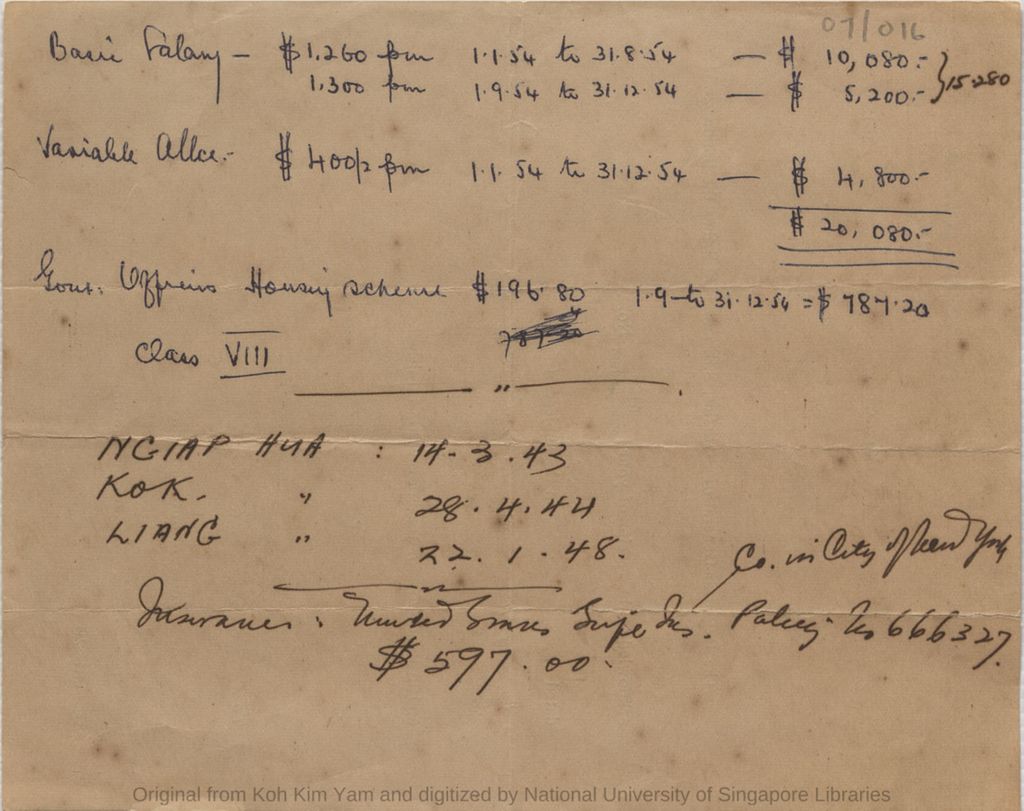 07/016
Basic Salary — $1,260 pm 1.1.54 to 31.8.54 — $ 10,080.-
1,300 pm 1.9.54 to 31.12.54 — $ 5,200.- } 15.280
Variable Allce.- $400/= pm 1.1.54 to 31.12.54 — $ 4,800.-
$ 20,080.-
Govt. Officers Housing scheme $196.80 1.9 to 31.12.54 = $787.20
Class VIII
— " —
NGIAP HUA : 14.3.43
KOK. " 28.4.44
LIANG " 22.1.48.
Co. in City of New York
Insurance : United States Life Ins. Policy No 666327.
$597.00.
Original from Koh Kim Yam and digitized by National University of Singapore Libraries